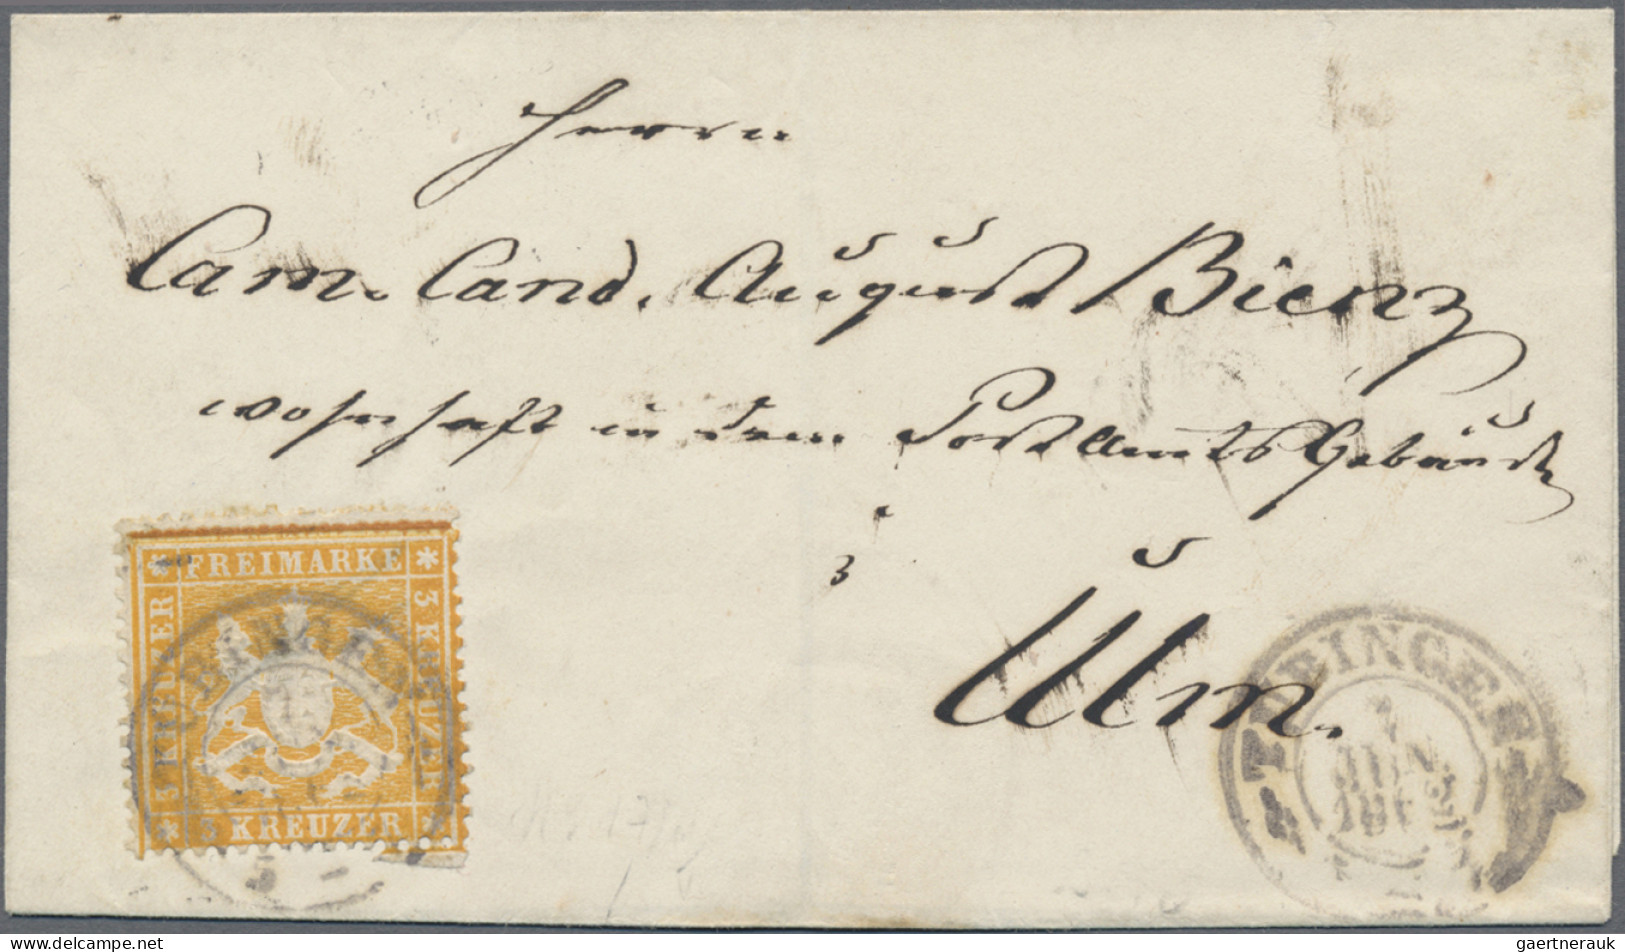 Herrn
Cam. Cand. August Bienz
wohnhaft in dem Postamtsgebäude
3
Ulm.
FREIMARKE
3 KREUZER
3 KREUZER
3 KREUZER
TÜBINGEN
TÜBINGEN
7
JUN.
delcampe.net
gaertnerauk